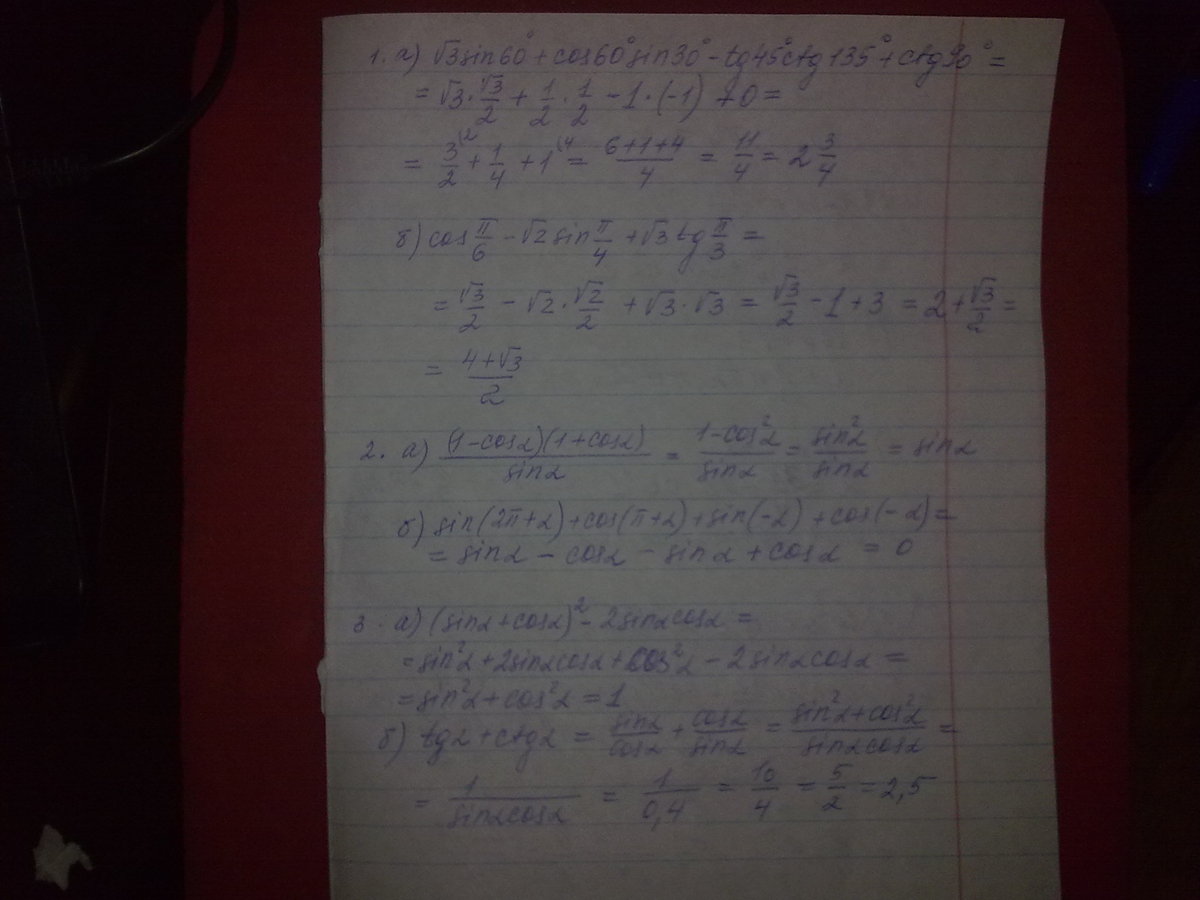 1. а) √3sin60° + cos60°sin30° - tg45°ctg135° + ctg90° =
= √3·√3/2 + 1/2·1/2 - 1·(-1) + 0 =
= 3/2(2 + 1/4 + 1(4 = (6+1+4)/4 = 11/4 = 2 3/4
б) cos π/6 - √2 sin π/4 + √3 tg π/3 =
= √3/2 - √2·√2/2 + √3·√3 = √3/2 - 1 + 3 = 2 + √3/2 =
= (4+√3)/2
2. а) (1-cosα)(1+cosα)/sinα = (1-cos²α)/sinα = sin²α/sinα = sinα
б) sin(2π+α) + cos(π+α) + sin(-α) + cos(-α) =
= sinα - cosα - sinα + cosα = 0
3. а) (sinα+cosα)² - 2sinαcosα =
= sin²α + 2sinαcosα + cos²α - 2sinαcosα =
= sin²α + cos²α = 1
б) tgα + ctgα = sinα/cosα + cosα/sinα = (sin²α+cos²α)/(sinαcosα) =
= 1/(sinαcosα) = 1/0,4 = 10/4 = 5/2 = 2,5